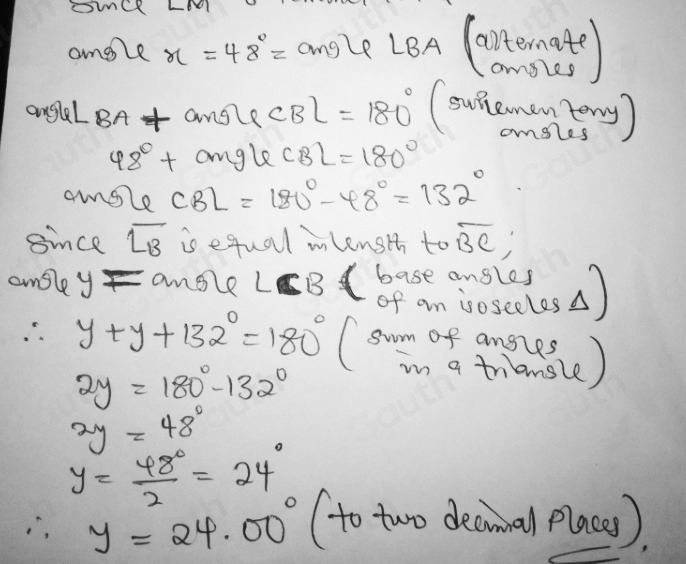 Since LM
angle x = 48° = angle LBA (alternate angles)
angle LBA + angle CBL = 180° (suplementary angles)
48° + angle CBL = 180°
angle CBL = 180° - 48° = 132°.
Since L̅B̅ is equal in length to B̅C̅;
angle y = angle LCB (base angles of an isosceles Δ)
∴ y + y + 132° = 180° (sum of angles in a triangle)
2y = 180° - 132°
2y = 48°
y = 48°/2 = 24°
∴ y = 24.00° (to two decimal places).